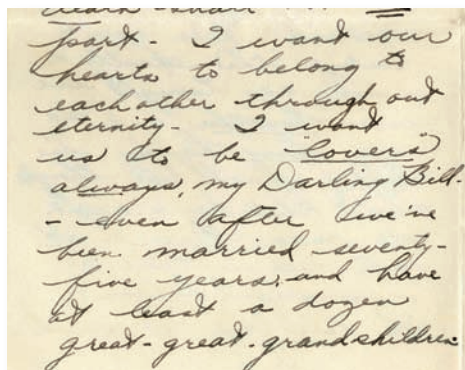 part - I want our
hearts to belong to
each other through out
eternity - I want
us to be "lovers"
always, my Darling Bill -
- even after we've
been married seventy-
five years, and have
at least a dozen
great-great-grandchildren